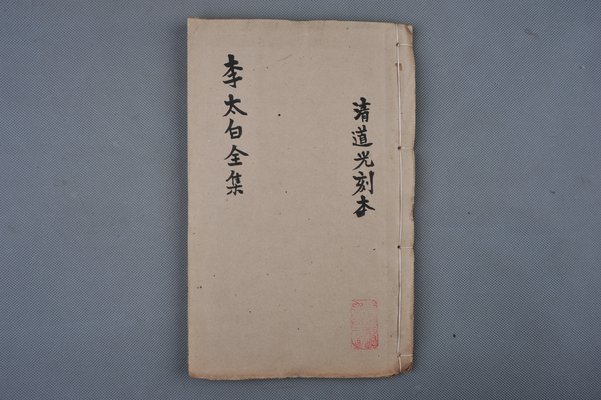 清道光刻本
李太白全集